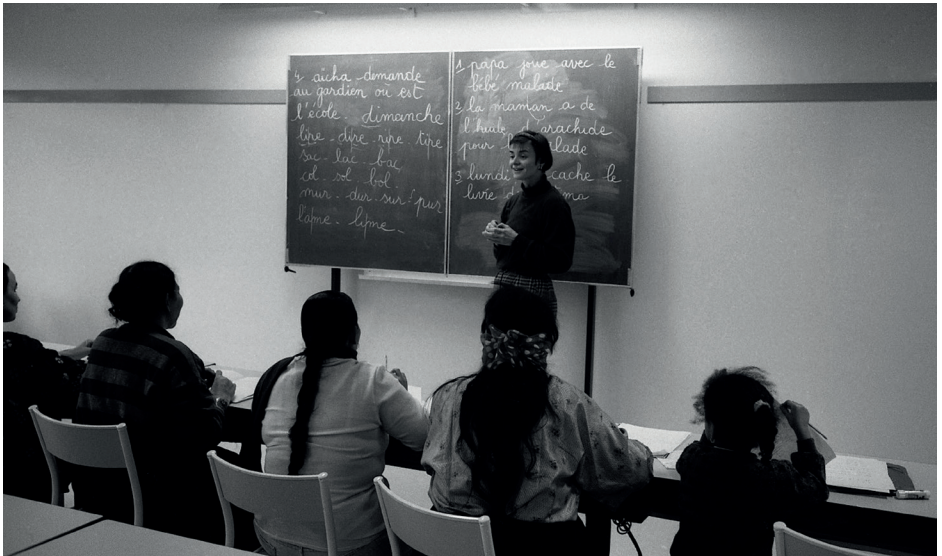 4 aïcha demande
au gardien où est
l'école. dimanche
lire - dire - rire - tire
sac - lac - bac
col - sol - bol
mur - dur - sur - pur
l'âme - lime -
1 papa joue avec le
bébé malade
2 la maman a de
l'huile d'arachide
pour malade
3 lundi cache le
livre